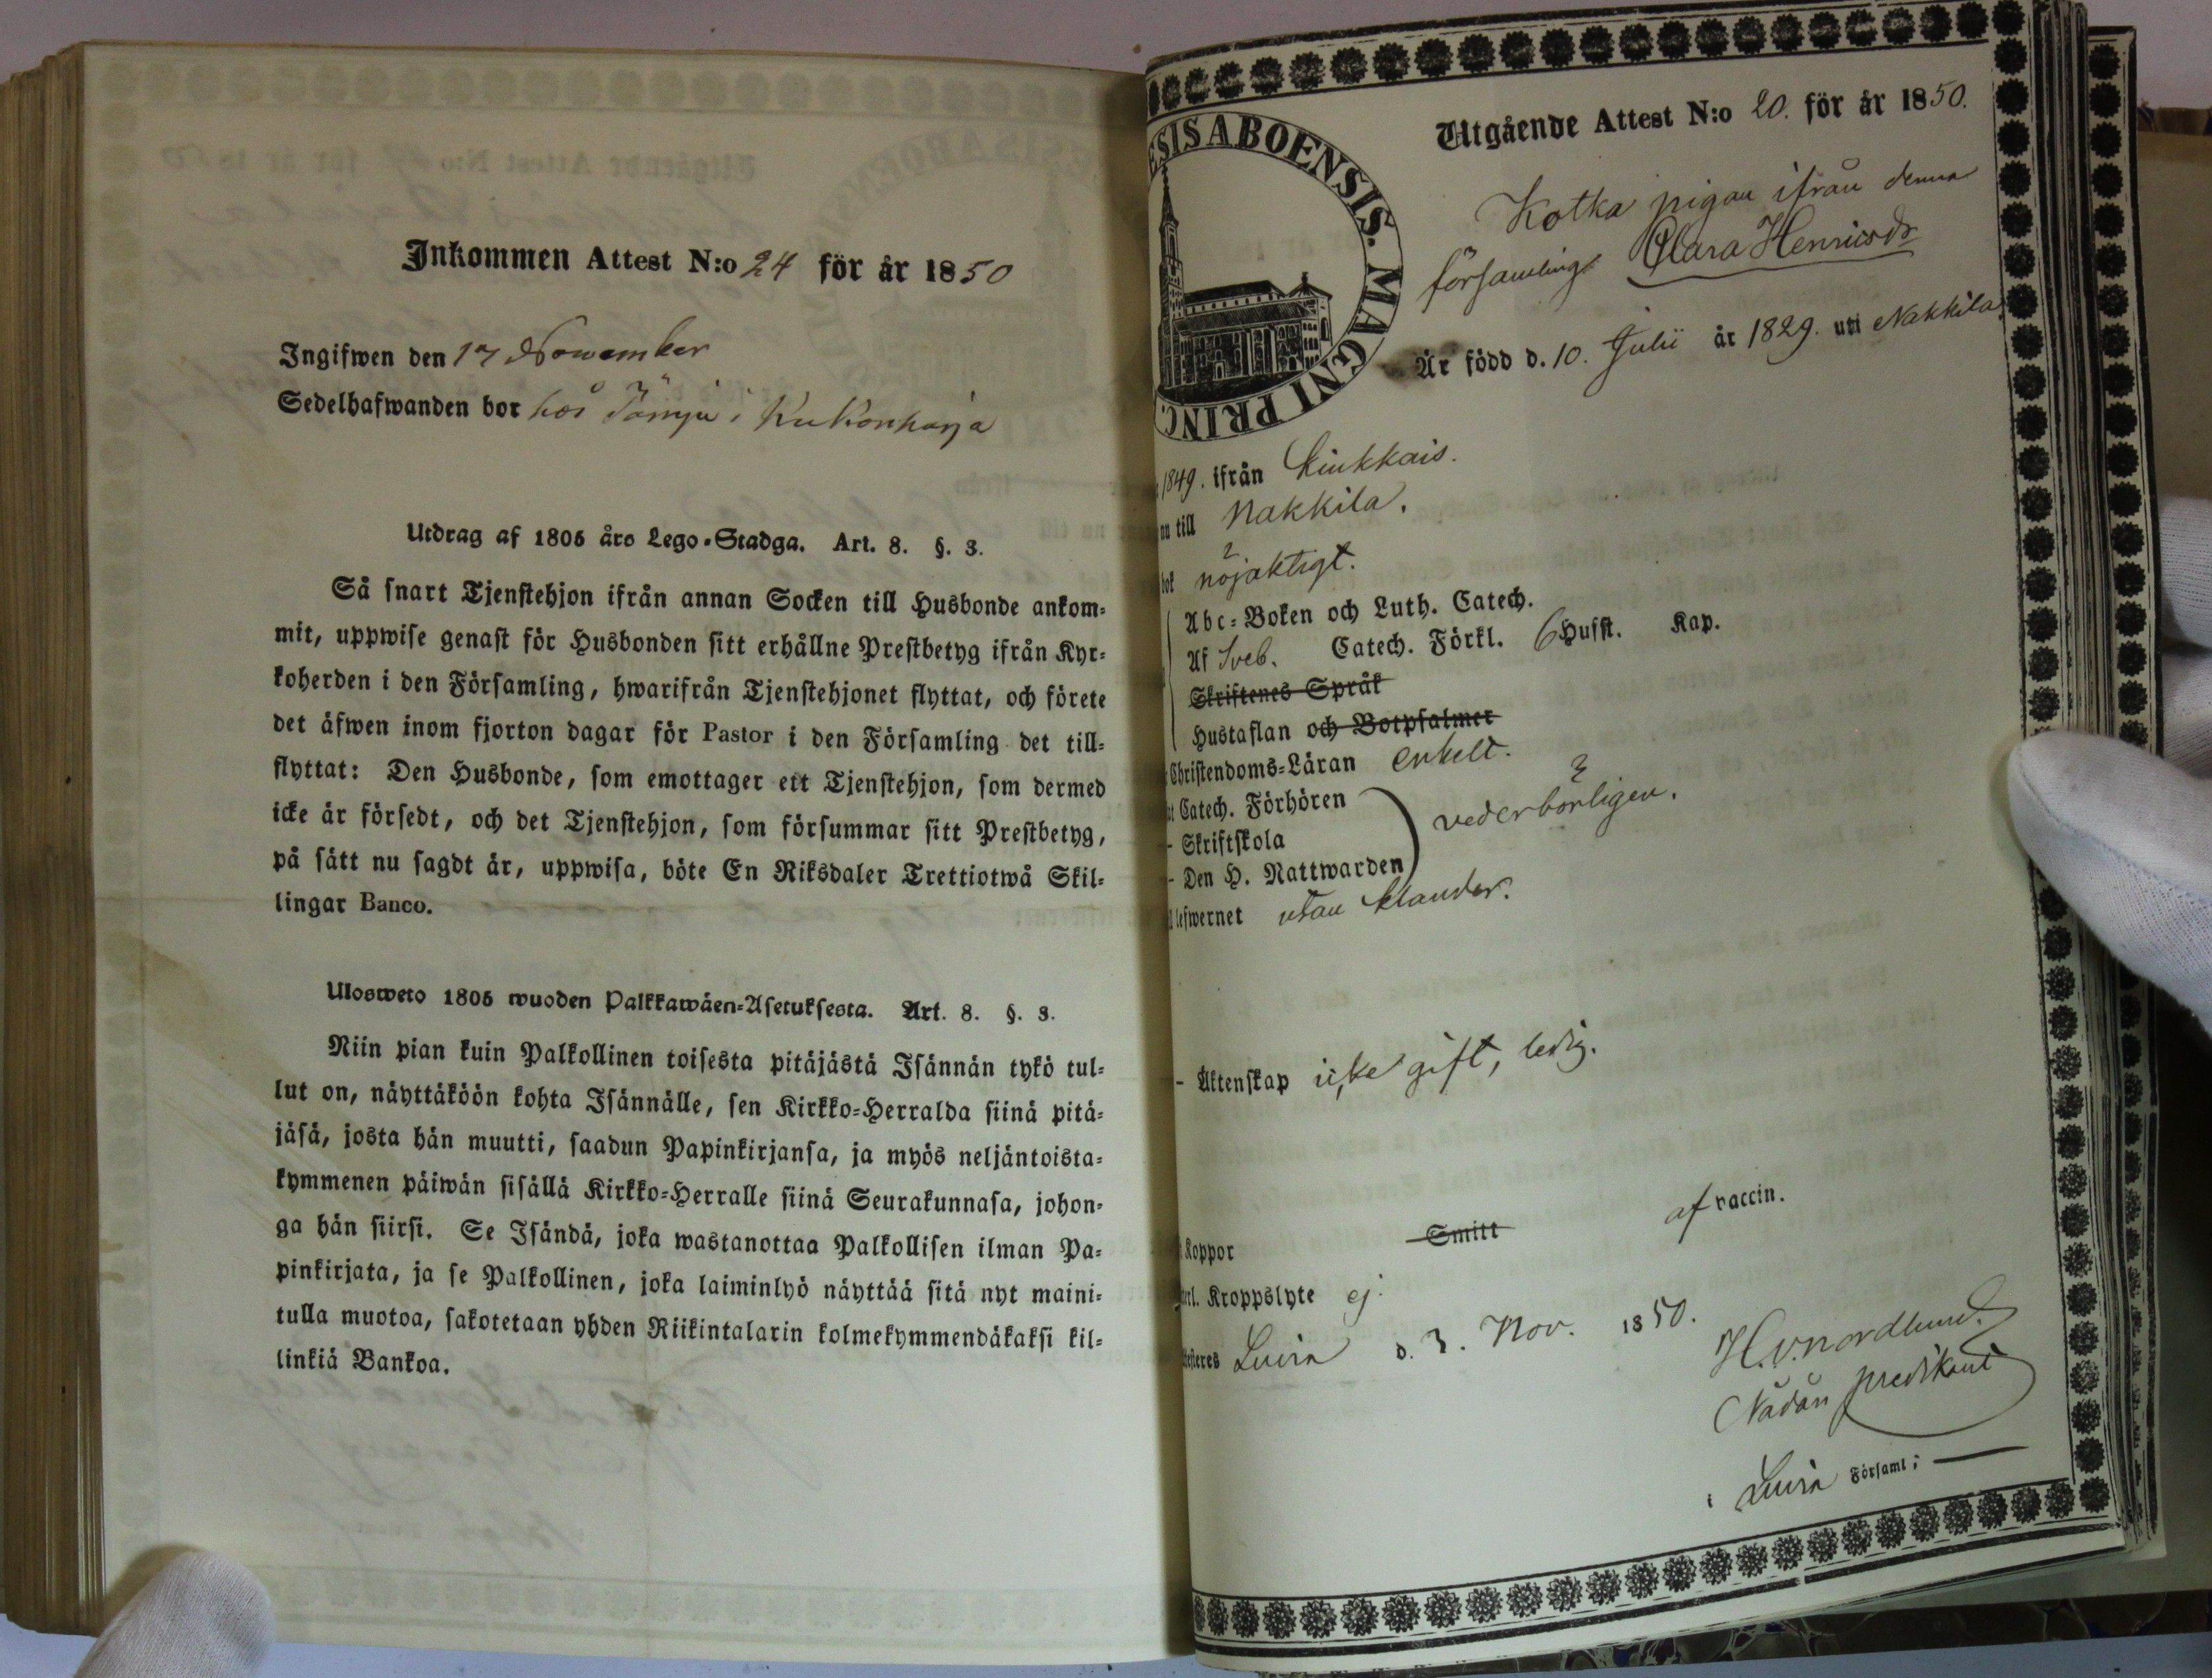 Inkommen Attest N:o 24 för år 1850
Ingifwen den 17 Nowember
Sedelhafwanden bor hos i Kukonharja
Utdrag af 1805 års Lego-Stadga. Art. 8. §. 3.
Så snart Tjenstehjon ifrån annan Socken till Husbonde ankom-
mit, uppwise genast för Husbonden sitt erhållne Prestbetyg ifrån Kyr-
koherden i den Församling, hwarifrån Tjenstehjonet flyttat, och förete
det äfwen inom fjorton dagar för Pastor i den Församling det till-
flyttat: Den Husbonde, som emottager ett Tjenstehjon, som dermed
icke är försedt, och det Tjenstehjon, som försummar sitt Prestbetyg,
på sätt nu sagdt är, uppwisa, böte En Riksdaler Trettiotwå Skil-
lingar Banco.
Ulosweto 1805 wuoden Palkkawäen-Asetuksesta. Art. 8. §. 3.
Niin pian kuin Palkollinen toisesta pitäjästä Isännän tykö tul-
lut on, näyttäköön kohta Isännälle, sen Kirkko-Herralda siinä pitä-
jäsä, josta hän muutti, saadun Papinkirjansa, ja myös neljäntoista-
kymmenen päiwän sisällä Kirkko-Herralle siinä Seurakunnasa, johon-
ga hän siirsi. Se Isändä, joka wastanottaa Palkollisen ilman Pa-
pinkirjata, ja se Palkollinen, joka laiminlyö näyttää sitä nyt maini-
tulla muotoa, sakotetaan yhden Riikintalarin kolmekymmendäkaksi kil-
linkiä Bankoa.
ESIS ABOENSIS. MAGNI PRINC.
Utgående Attest N:o 20. för år 1850.
Kotka pigan ifrån denna
församling Clara Henricsdr
Är född d. 10. Julii år 1829. uti Nakkila.
1849. ifrån Kiukkais.
nu till Nakkila.
bok nöjaktigt.
Abc-Boken och Luth. Catech.
Af Sveb. Catech. Förkl. 6 Husst. Kap.
Skriftenes Språk
Hustaflan och Botpsalmer
Christendoms-Läran enkelt.
Catech. Förhören
- Skriftskola vederbörligen.
- Den H. Nattwarden
lefwernet utan klander.
- Äktenskap icke gift, ledig.
Koppor Smitt af vaccin.
Kroppslyte ej.
Luvia d. 3. Nov. 1850.
H. v. Nordlund.
Nådår predikant
i Luvia Församl;